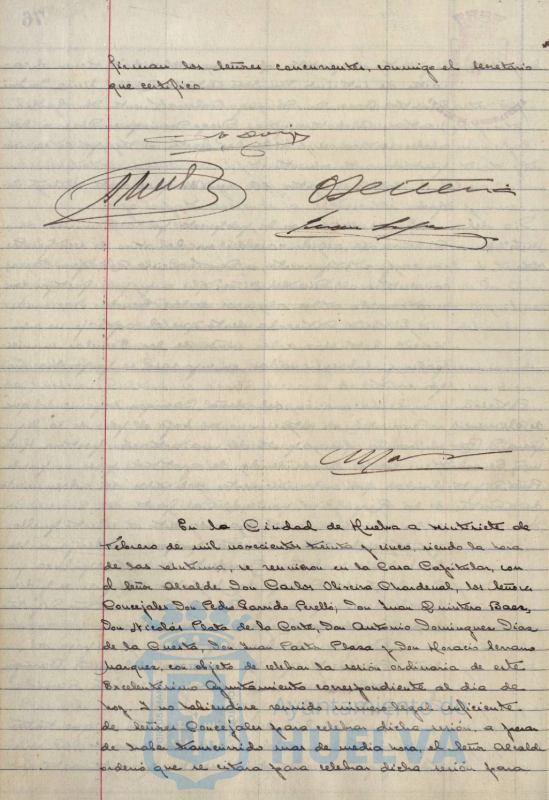 firman los señores concurrentes, conmigo el Secretario
que certifico.
En la Ciudad de Huelva a veintisiete de
Febrero de mil novecientos treinta y cinco, siendo la hora
de las veintiuna, se reunieron en la Casa Capitular, con
el Señor Alcalde Don Carlos Oliveira Chardenal, los Señores
Concejales Don Pedro Garrido Perelló, Don Juan Quintero Baez,
Don Nicolás Plata de la Corte, Don Antonio Domínguez Díaz
de la Cuesta, Don Juan Plaza y Don Horacio Serrano
Marquez, con objeto de celebrar la sesión ordinaria de este
Excelentísimo Ayuntamiento correspondiente al día de
hoy. Y no habiéndose reunido número legal suficiente
de Señores Concejales para celebrar dicha sesión, a pesar
de haber transcurrido mas de media hora, el Señor Alcalde
ordenó que se citara para celebrar dicha sesión para
Ayuntamiento de
HUELVA